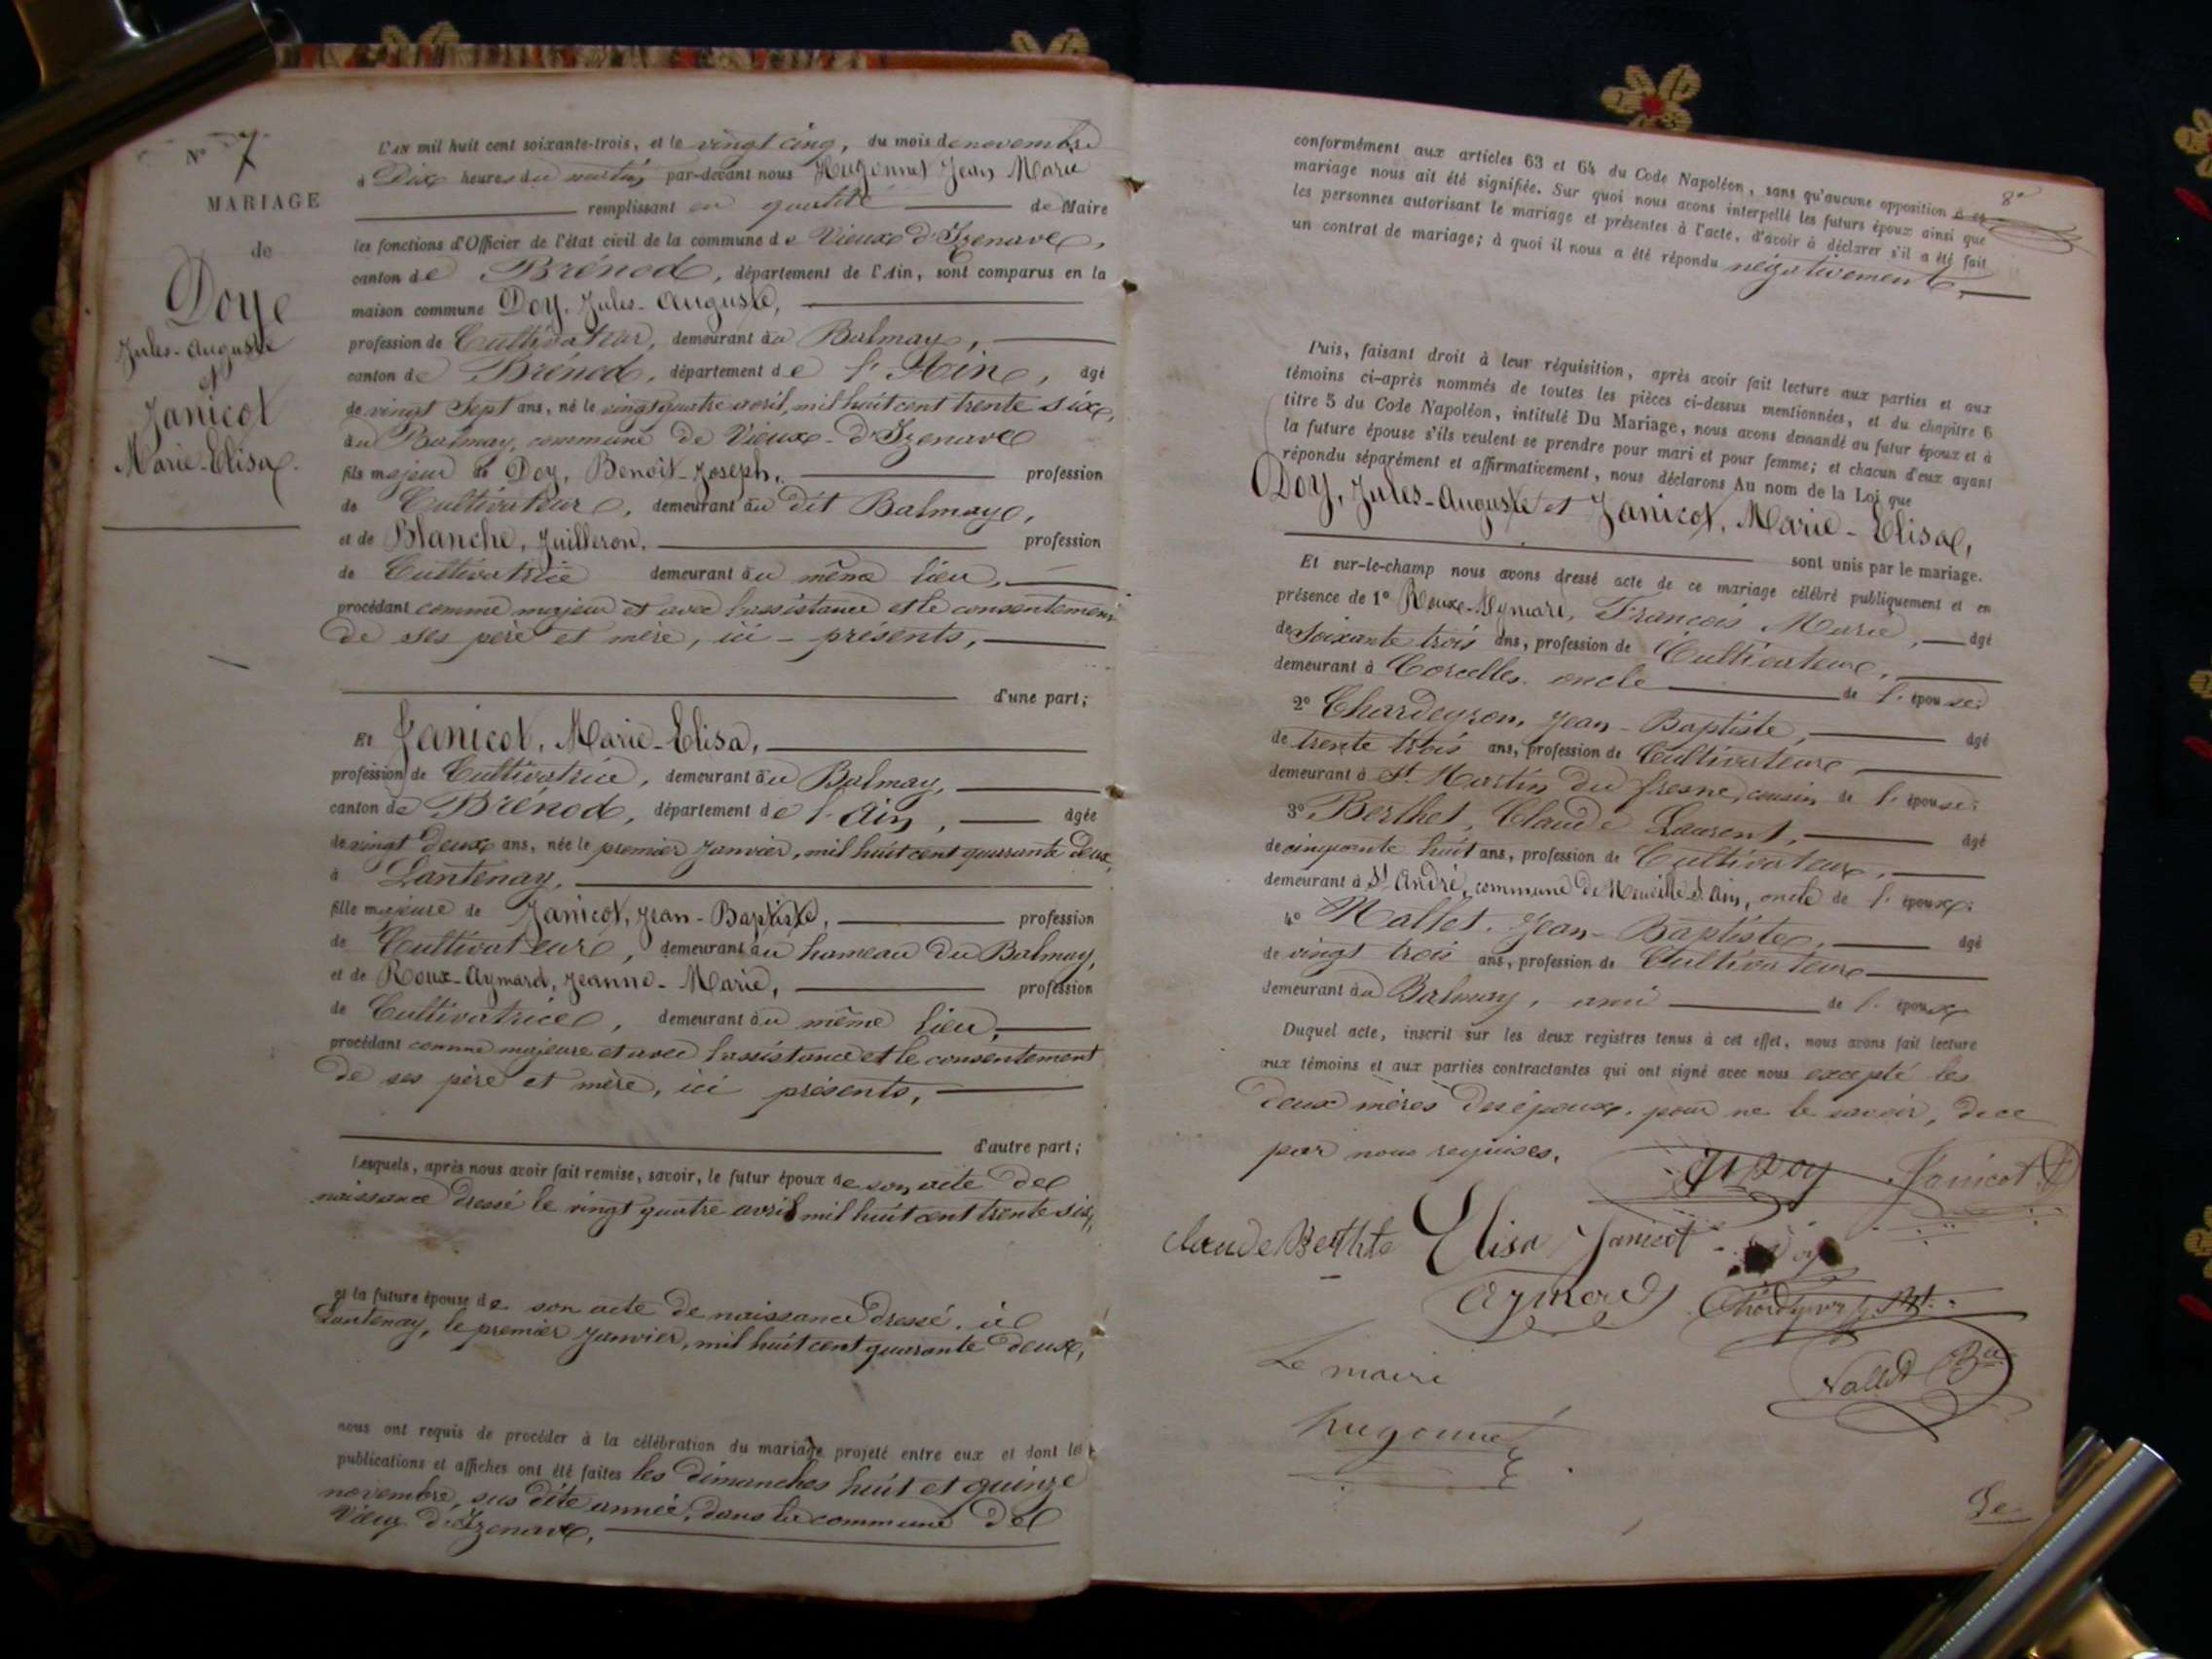 N° 7
MARIAGE
de
Doye
Jules-Auguste
et
Janicot
Marie-Elisa.
L'AN mil huit cent soixante-trois, et le vingt cinq, du mois de novembre
à Dix heures du matin, par-devant nous Hugonnet Jean Marie
remplissant en qualité de Maire
les fonctions d'Officier de l'état civil de la commune de Vieux d'Izenave,
canton de Brénod, département de l'Ain, sont comparus en la
maison commune Doy, Jules-Auguste,
profession de Cultivateur, demeurant au Balmay,
canton de Brénod, département de l'Ain, âgé
de vingt sept ans, né le vingt quatre avril, mil huit cent trente six,
au Balmay, commune de Vieux-d'Izenave
fils majeur de Doy, Benoît-Joseph, profession
de Cultivateur, demeurant au dit Balmay,
et de Blanche, Juilleron, profession
de Cultivatrice demeurant au même lieu,
procédant comme majeur et avec l'assistance et le consentement
de ses père et mère, ici-présents,
d'une part;
Et Janicot, Marie-Elisa,
profession de Cultivatrice, demeurant au Balmay,
canton de Brénod, département de l'Ain, âgée
de vingt deux ans, née le premier Janvier, mil huit cent quarante deux,
à Lantenay,
fille majeure de Janicot, Jean-Baptiste, profession
de Cultivateur, demeurant au hameau du Balmay,
et de Roux-Aymard, Jeanne-Marie, profession
de Cultivatrice, demeurant au même lieu,
procédant comme majeure et avec l'assistance et le consentement
de ses père et mère, ici présents,
d'autre part;
Lesquels, après nous avoir fait remise, savoir, le futur époux de son acte de
naissance dressé le vingt quatre avril mil huit cent trente six,
et la future épouse de son acte de naissance dressé, à
Lantenay, le premier Janvier, mil huit cent quarante deux,
nous ont requis de procéder à la célébration du mariage projeté entre eux et dont les
publications et affiches ont été faites les dimanches huit et quinze
novembre, sus dite année, dans la commune de
Vieux d'Izenave,
8e
conformément aux articles 63 et 64 du Code Napoléon, sans qu'aucune opposition à ce
mariage nous ait été signifiée. Sur quoi nous avons interpellé les futurs époux ainsi que
les personnes autorisant le mariage et présentes à l'acte, d'avoir à déclarer s'il a été fait
un contrat de mariage; à quoi il nous a été répondu négativement,
Puis, faisant droit à leur réquisition, après avoir fait lecture aux parties et aux
témoins ci-après nommés de toutes les pièces ci-dessus mentionnées, et du chapitre 6
titre 5 du Code Napoléon, intitulé Du Mariage, nous avons demandé au futur époux et à
la future épouse s'ils veulent se prendre pour mari et pour femme; et chacun d'eux ayant
répondu séparément et affirmativement, nous déclarons Au nom de la Loi que
Doy, Jules-Auguste et Janicot, Marie-Elisa,
sont unis par le mariage.
Et sur-le-champ nous avons dressé acte de ce mariage célébré publiquement et en
présence de 1° Roux-Aymard, François Marie, âgé
de soixante trois ans, profession de Cultivateur,
demeurant à Corcelles, oncle de l'épouse;
2° Chardeyron, Jean-Baptiste, âgé
de trente trois ans, profession de Cultivateur
demeurant à St Martin du fresne, cousin de l'épouse;
3° Berthet, Claude Laurent, âgé
de cinquante huit ans, profession de Cultivateur,
demeurant à St André, commune de Neuville s. Ain, oncle de l'époux;
4° Nallet, Jean-Baptiste, âgé
de vingt trois ans, profession de Cultivateur
demeurant au Balmay, ami de l'époux
Duquel acte, inscrit sur les deux registres tenus à cet effet, nous avons fait lecture
aux témoins et aux parties contractantes qui ont signé avec nous excepté les
deux mères des époux, pour ne le savoir, de ce
par nous requises.
Doy Janicot
Claude Berthte Elisa Janicot Doy
Aymard
Nallet
Le maire
hugonnet
Le